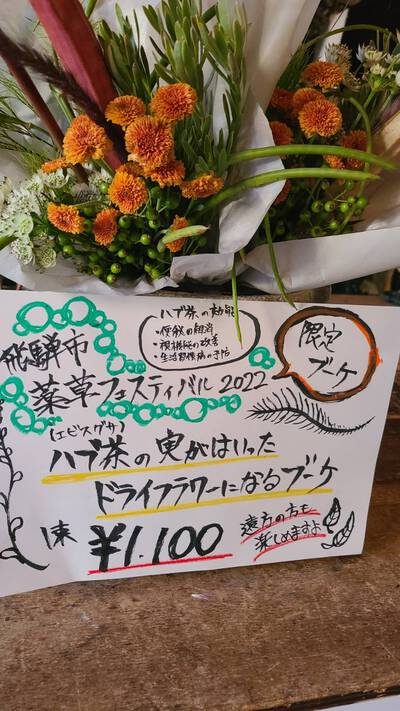 ハブ茶の効能
・便秘の解消
・視機能の改善
・生活習慣病の予防
限定
ブーケ
飛騨市
薬草フェスティバル 2022
(エビスグサ)
ハブ茶の実がはいった
ドライフラワーになるブーケ
1束 ¥1.100
遠方の方も
楽しめますよ